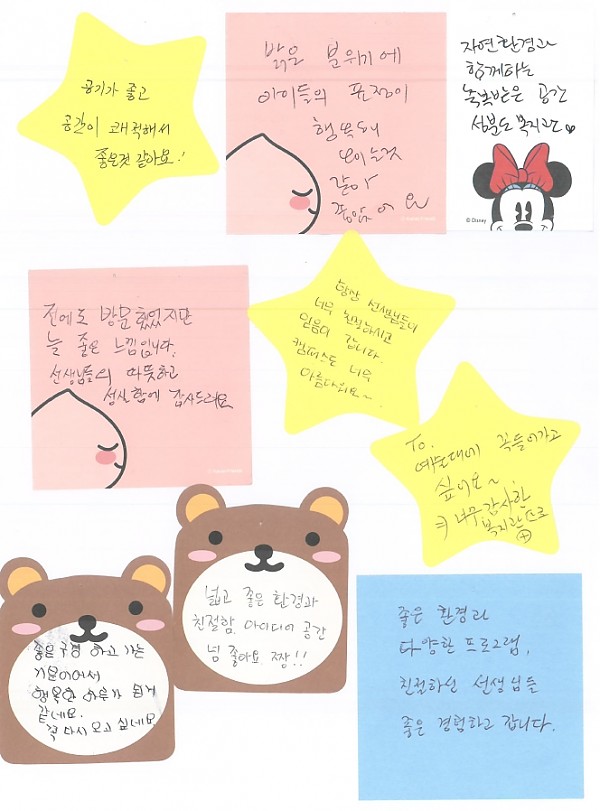 공기가 좋고
공간이 쾌적해서
좋은것 같아요!
밝은 분위기에
아이들의 표정이
행복해
보이는것
같아
좋았어요
자연환경과
함께하는
축복받은 공간
성분도 복지관
© Disney
전에도 방문했었지만
늘 좋은 느낌입니다.
선생님들의 따뜻하고
성실함에 감사드려요
항상 선생님들이
너무 친절하시고
믿음이 갑니다.
캠퍼스도 너무
아름다워요~
To.
꼭들어가고
싶어요~
너무감사한
복지관
넓고 좋은 환경과
친절함, 아이디어 공간
넘 좋아요 짱!!
좋은 구경 하고 가는
기분이어서
행복한 하루가 될거
같네요.
꼭 다시 오고 싶네요
좋은 환경과
다양한 프로그램,
친절하신 선생님들
좋은 경험하고 갑니다.